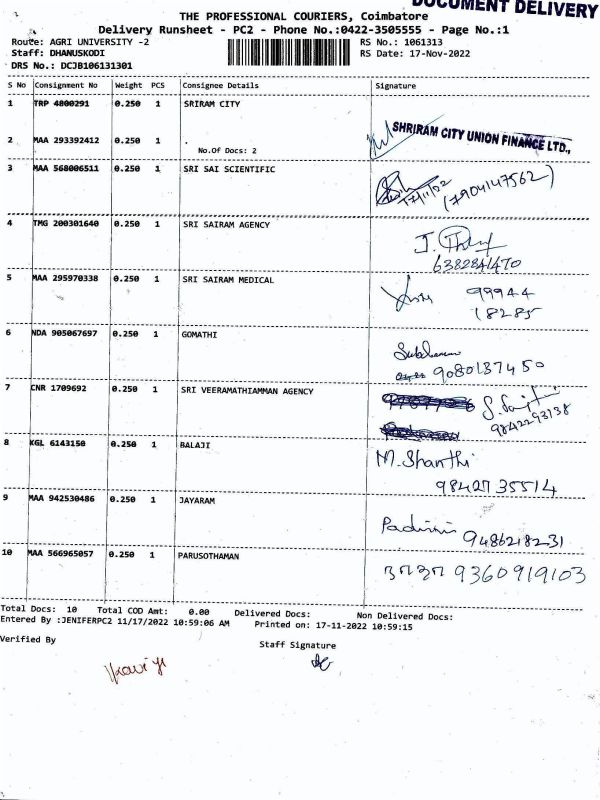 DOCUMENT DELIVERY
THE PROFESSIONAL COURIERS, Coimbatore
Delivery Runsheet - PC2 - Phone No.:0422-3505555 - Page No.:1
Route: AGRI UNIVERSITY -2 RS No.: 1061313
Staff: DHANUSKODI RS Date: 17-Nov-2022
DRS No.: DCJB106131301
S No Consignment No Weight PCS Consignee Details Signature
1 TRP 4800291 0.250 1 SRIRAM CITY
SHRIRAM CITY UNION FINANCE LTD.,
2 MAA 293392412 0.250 1 .
No.Of Docs: 2
3 MAA 568006511 0.250 1 SRI SAI SCIENTIFIC
17/11/02 (7904147562)
4 TMG 200301640 0.250 1 SRI SAIRAM AGENCY
6382841470
5 MAA 295970338 0.250 1 SRI SAIRAM MEDICAL
99944
18285
6 NDA 905067697 0.250 1 GOMATHI
9080137450
7 CNR 1709692 0.250 1 SRI VEERAMATHIAMMAN AGENCY
9842293138
8 KGL 6143150 0.250 1 BALAJI
M. Shanthi
9842735514
9 MAA 942530486 0.250 1 JAYARAM
9486218231
10 MAA 566965057 0.250 1 PARUSOTHAMAN
9360919103
Total Docs: 10 Total COD Amt: 0.00 Delivered Docs: Non Delivered Docs:
Entered By :JENIFERPC2 11/17/2022 10:59:06 AM Printed on: 17-11-2022 10:59:15
Verified By Staff Signature